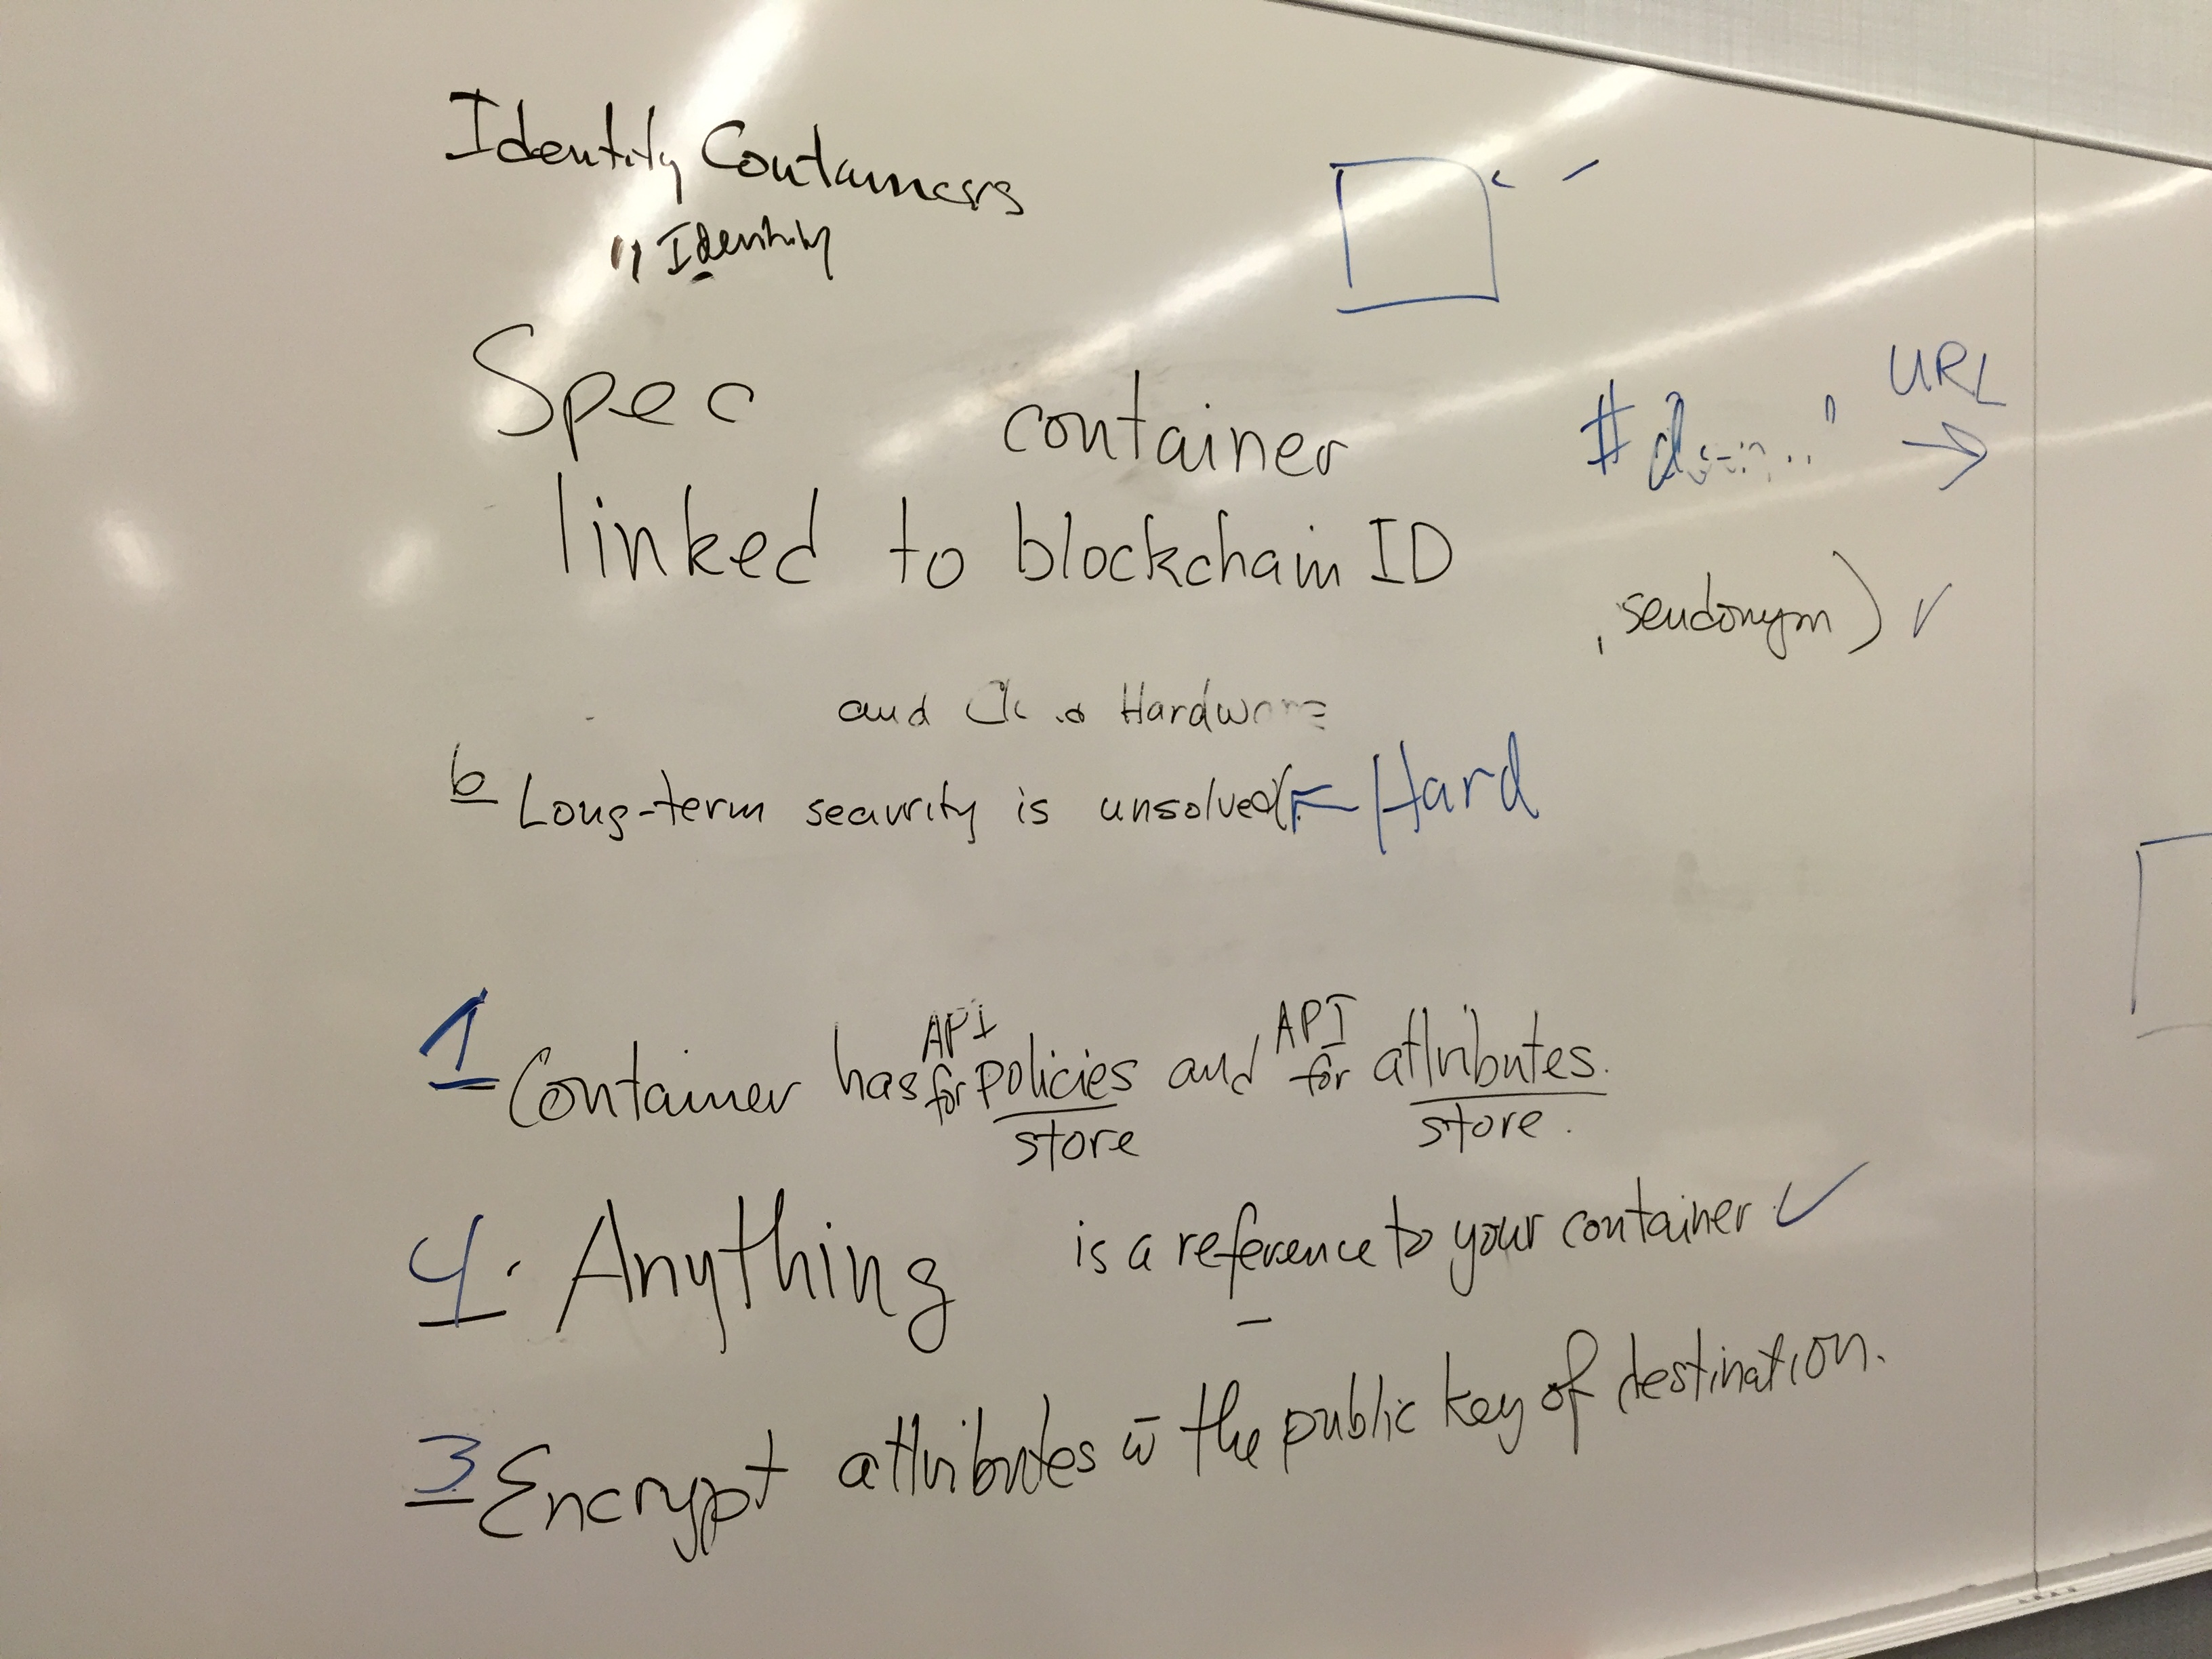 Identity Containers
" Identity
Spec container
linked to blockchain ID
URL
#
, seudonym) ✓
and Hardware
b Long-term security is unsolved ← Hard
1 Container has API for policies and API for attributes.
store store.
4. Anything is a reference to your container ✓
3 Encrypt attributes w̄ the public key of destination.